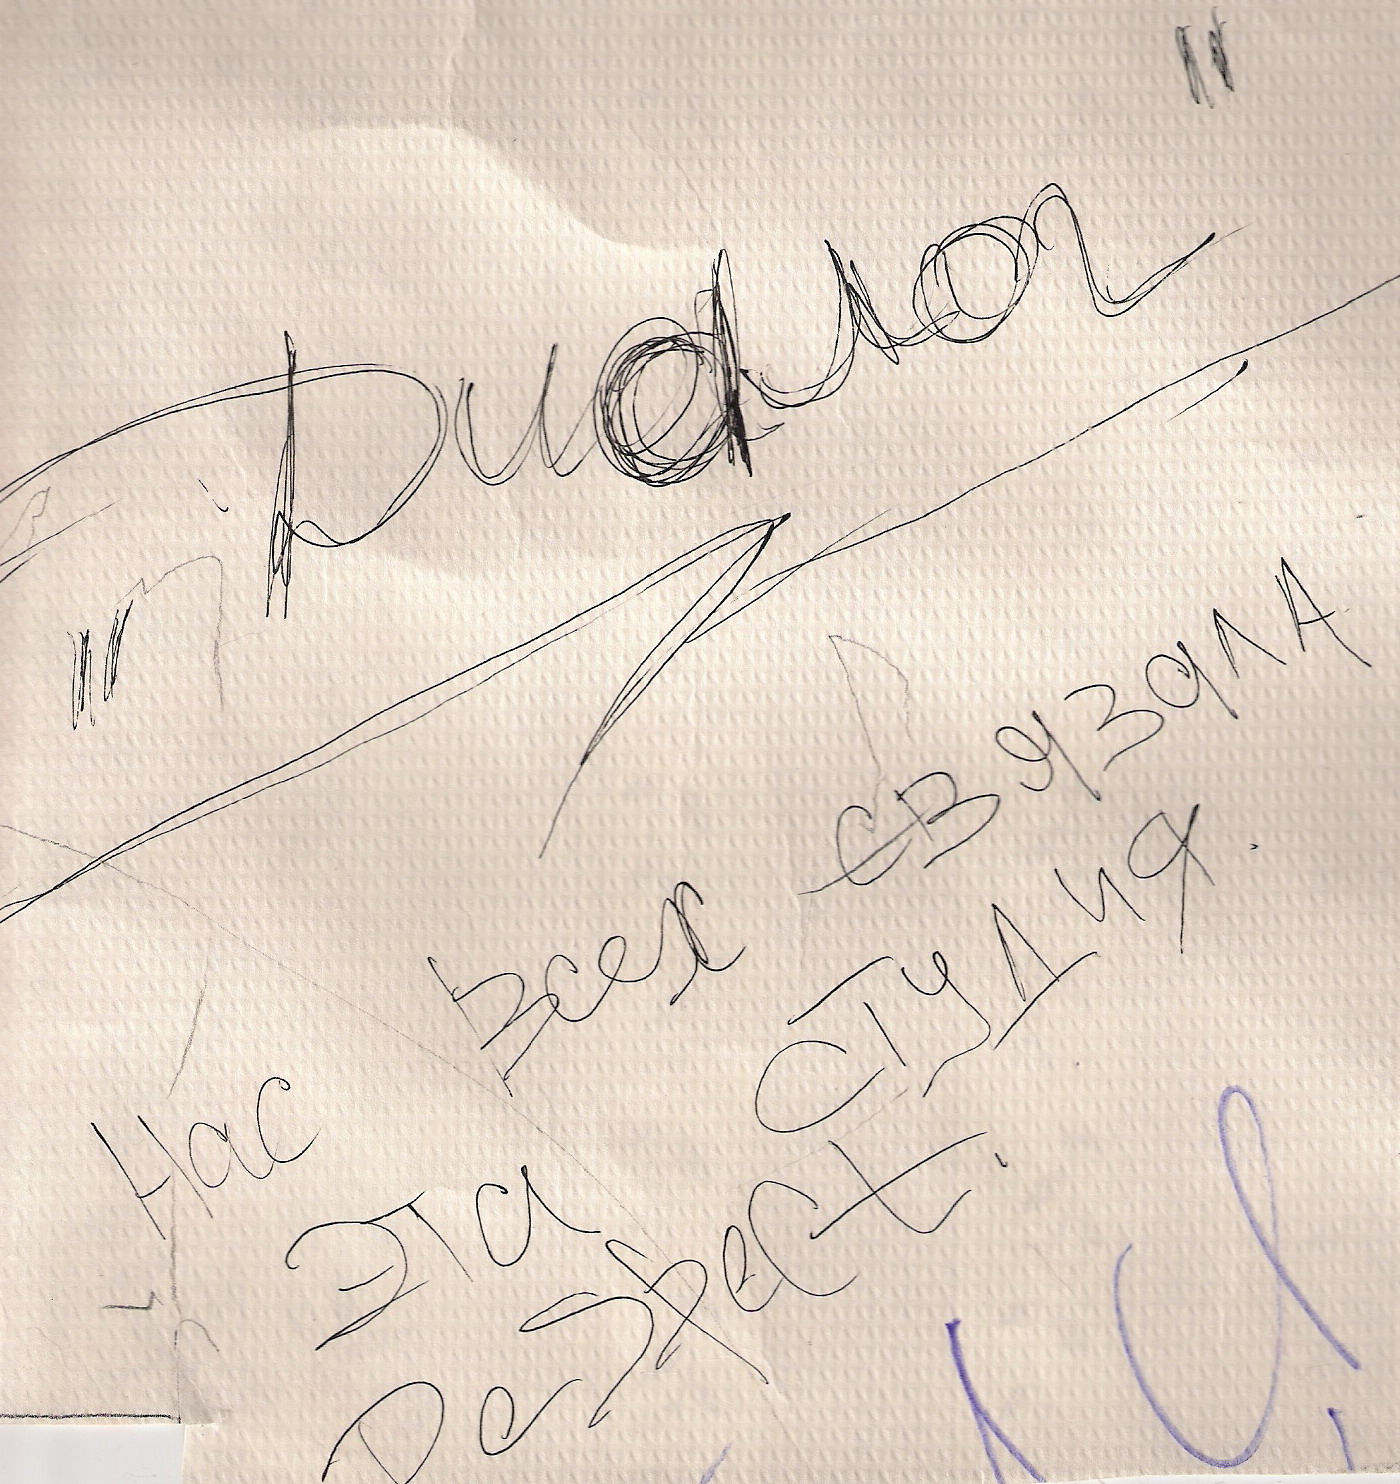 "Диалог"
Нас Всех СВЯЗАЛА
Эта СТУДИЯ.
ReSpect.